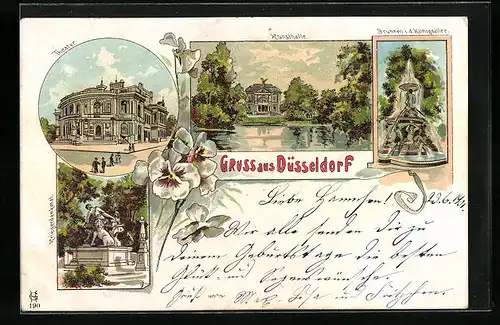 Theater
Kunsthalle
Brunnen i. d. Königsallee.
Kriegerdenkmal.
GRUSS aus DÜSSELDORF
Liebe Hannchen! 23.6.
Wir alle senden Dir zu
Deinem Geburtstage die besten
Glück- und Segenswünsche.
Gruß von Max, Lisa und Fritzchen.
190